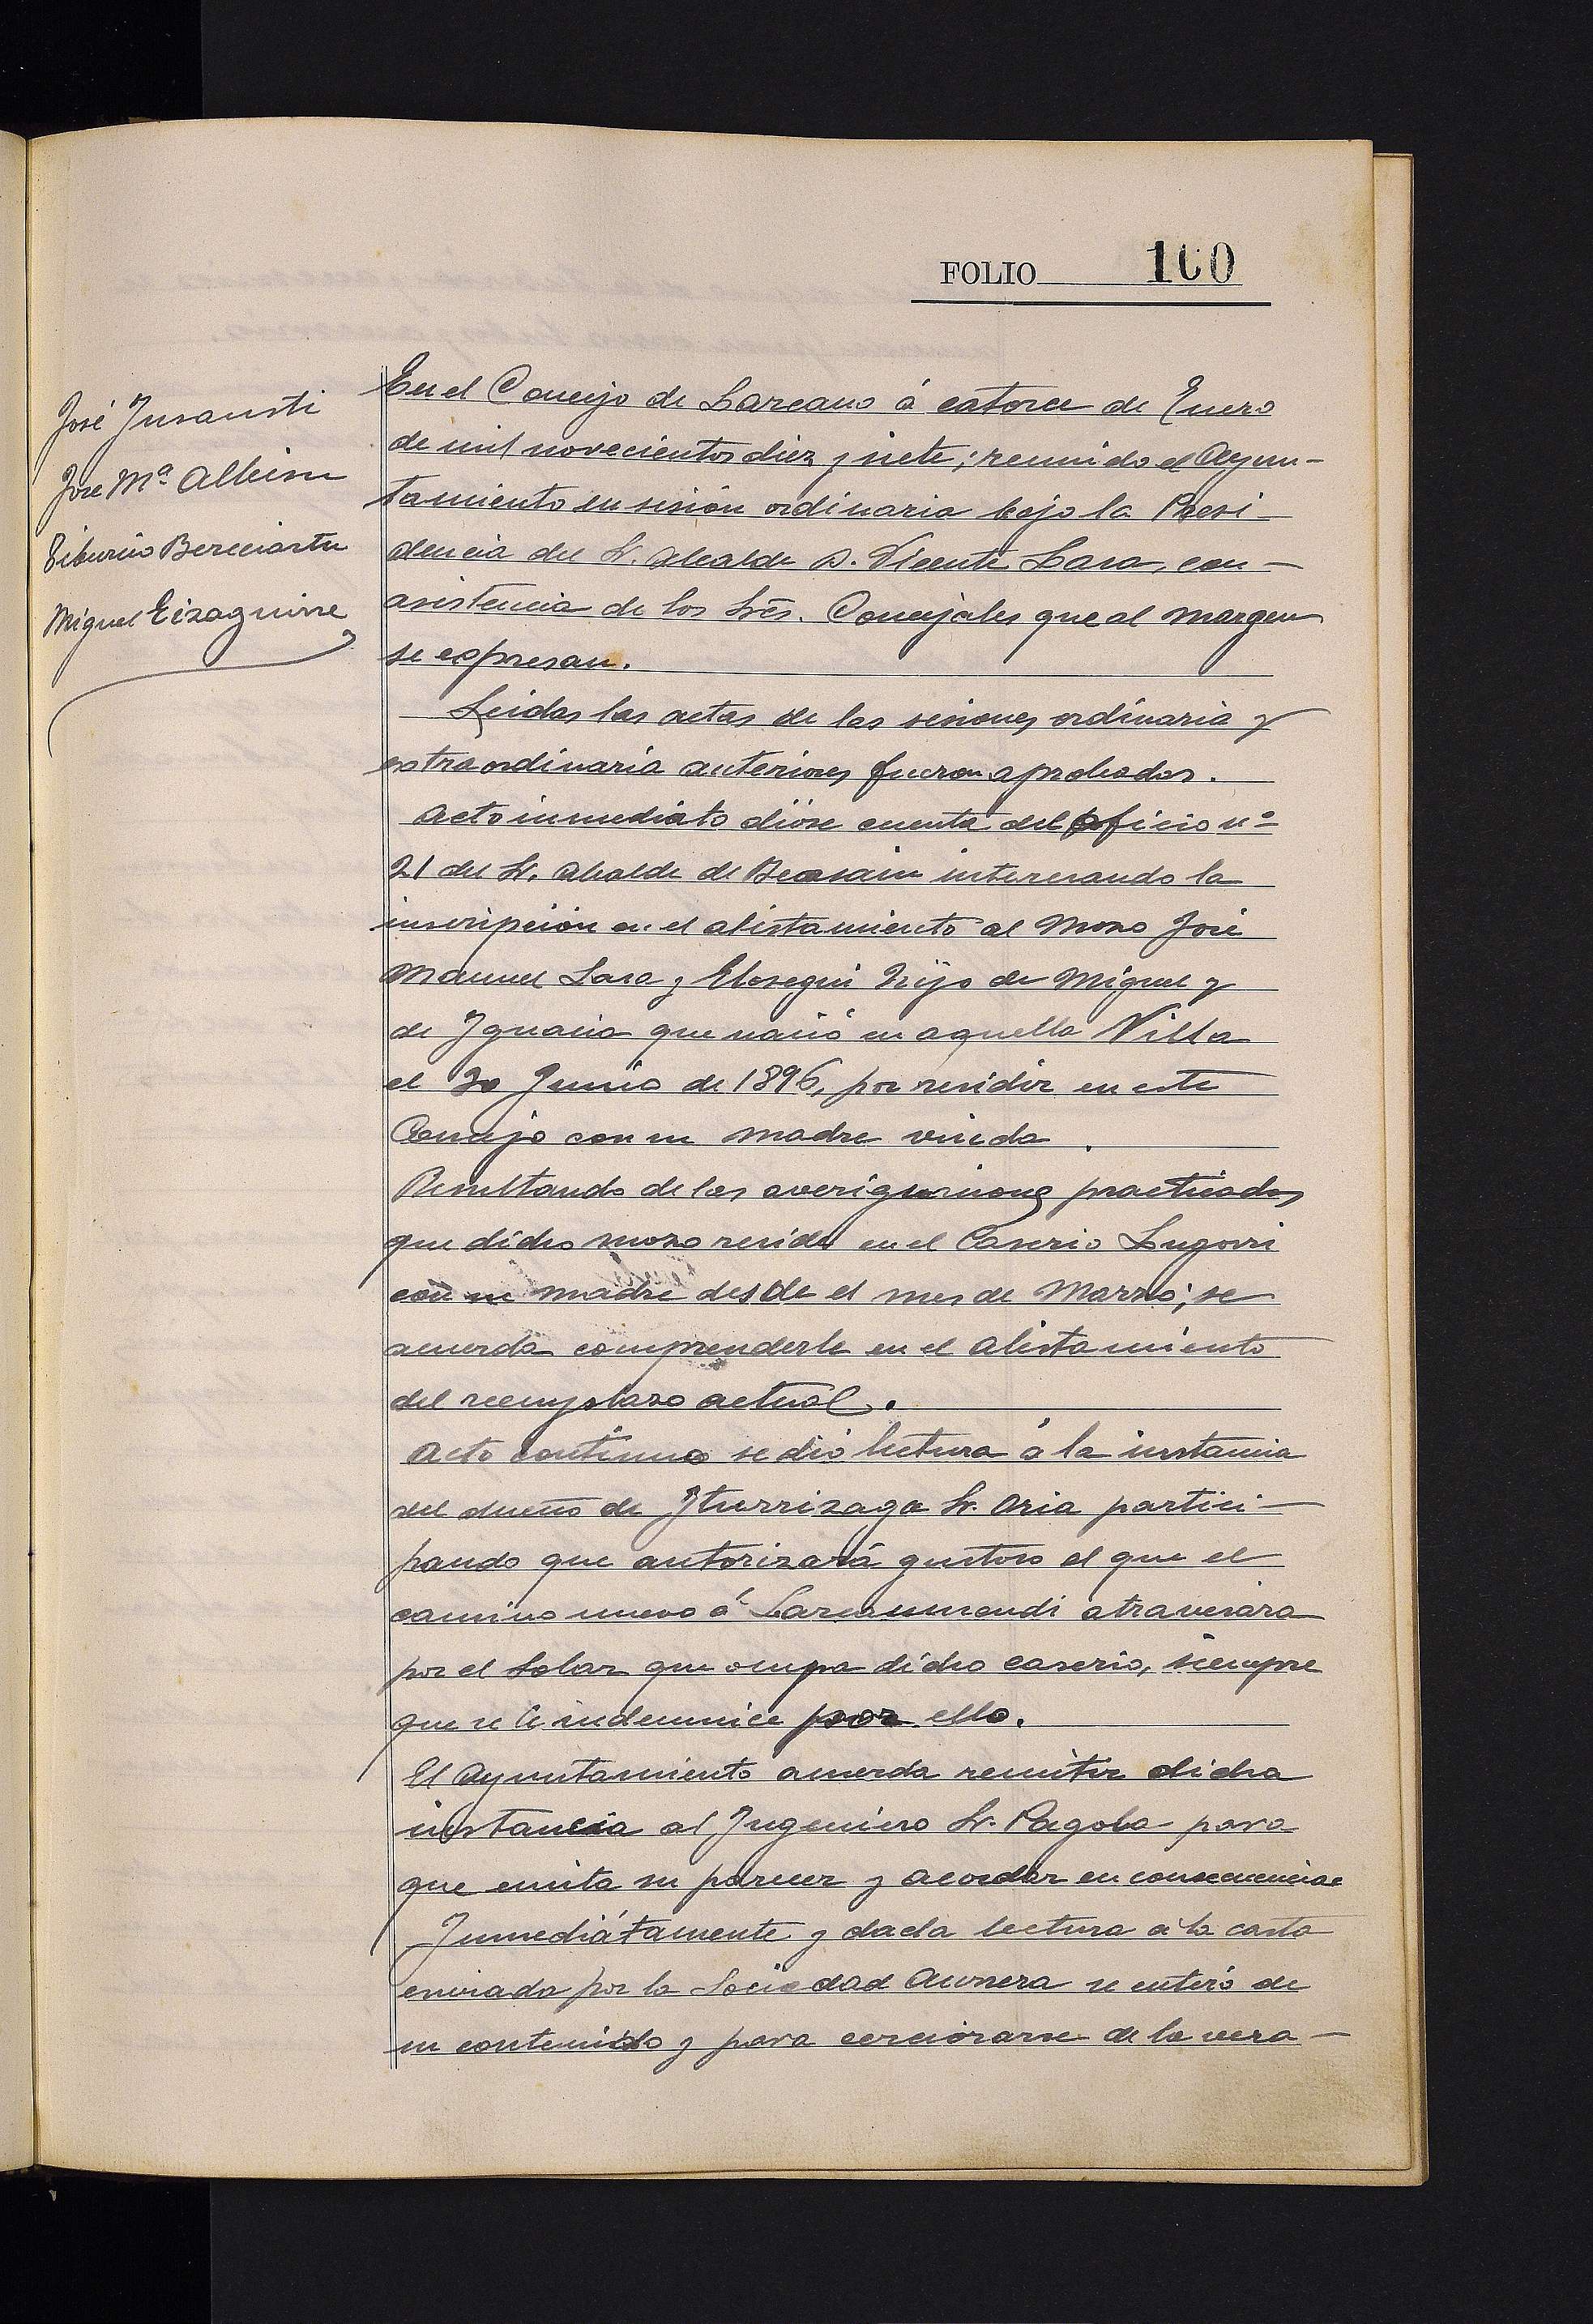 FOLIO 100
José Insausti
José Mª Albisu
Tiburcio Bereciartu
Miguel Eizaguirre
En el Concejo de Lazcano á catorce de Enero
de mil novecientos diez y siete; reunido el Ayun-
tamiento en sesión ordinaria bajo la Presi-
dencia del Sr. Alcalde D. Vicente Lasa, con
asistencia de los Srēs. Concejales que al margen
se expresan.
Leidas las actas de las sesiones ordinaria y
extraordinaria anteriores fueron aprobadas.
Acto inmediato dióse cuenta del oficio nº
21 del Sr. Alcalde de Beasain interesando la
inscripción en el alistamiento al mozo José
Manuel Lasa y Elosegui hijo de Miguel y
de Ignacia que nació en aquella Villa
el 30 Junio de 1896, por residir en este
Concejo con su madre viuda.
Resultando de las averiguaciones practicadas
que dicho mozo reside en el Caserio Lugorri
con su madre desde el mes de Marzo; se
acuerda comprenderle en el alistamiento
del reemplazo actual.
Acto continuo se dió lectura á la instancia
del dueño de Iturrizaga Sr. Oria partici-
pando que autorizará gustoso el que el
camino nuevo á Lazcanomendi atravesara
por el solar que ocupa dicho caserio, siempre
que se le indemnice por ello.
El Ayuntamiento acuerda remitir dicha
instancia al Ingeniero Sr. Pagola para
que emita su parecer y acordar en consecuencia
Inmediátamente y dada lectura á la carta
enviada por la Sociedad Aurrera se enteró de
su contenido y para cerciorarse de la vera-